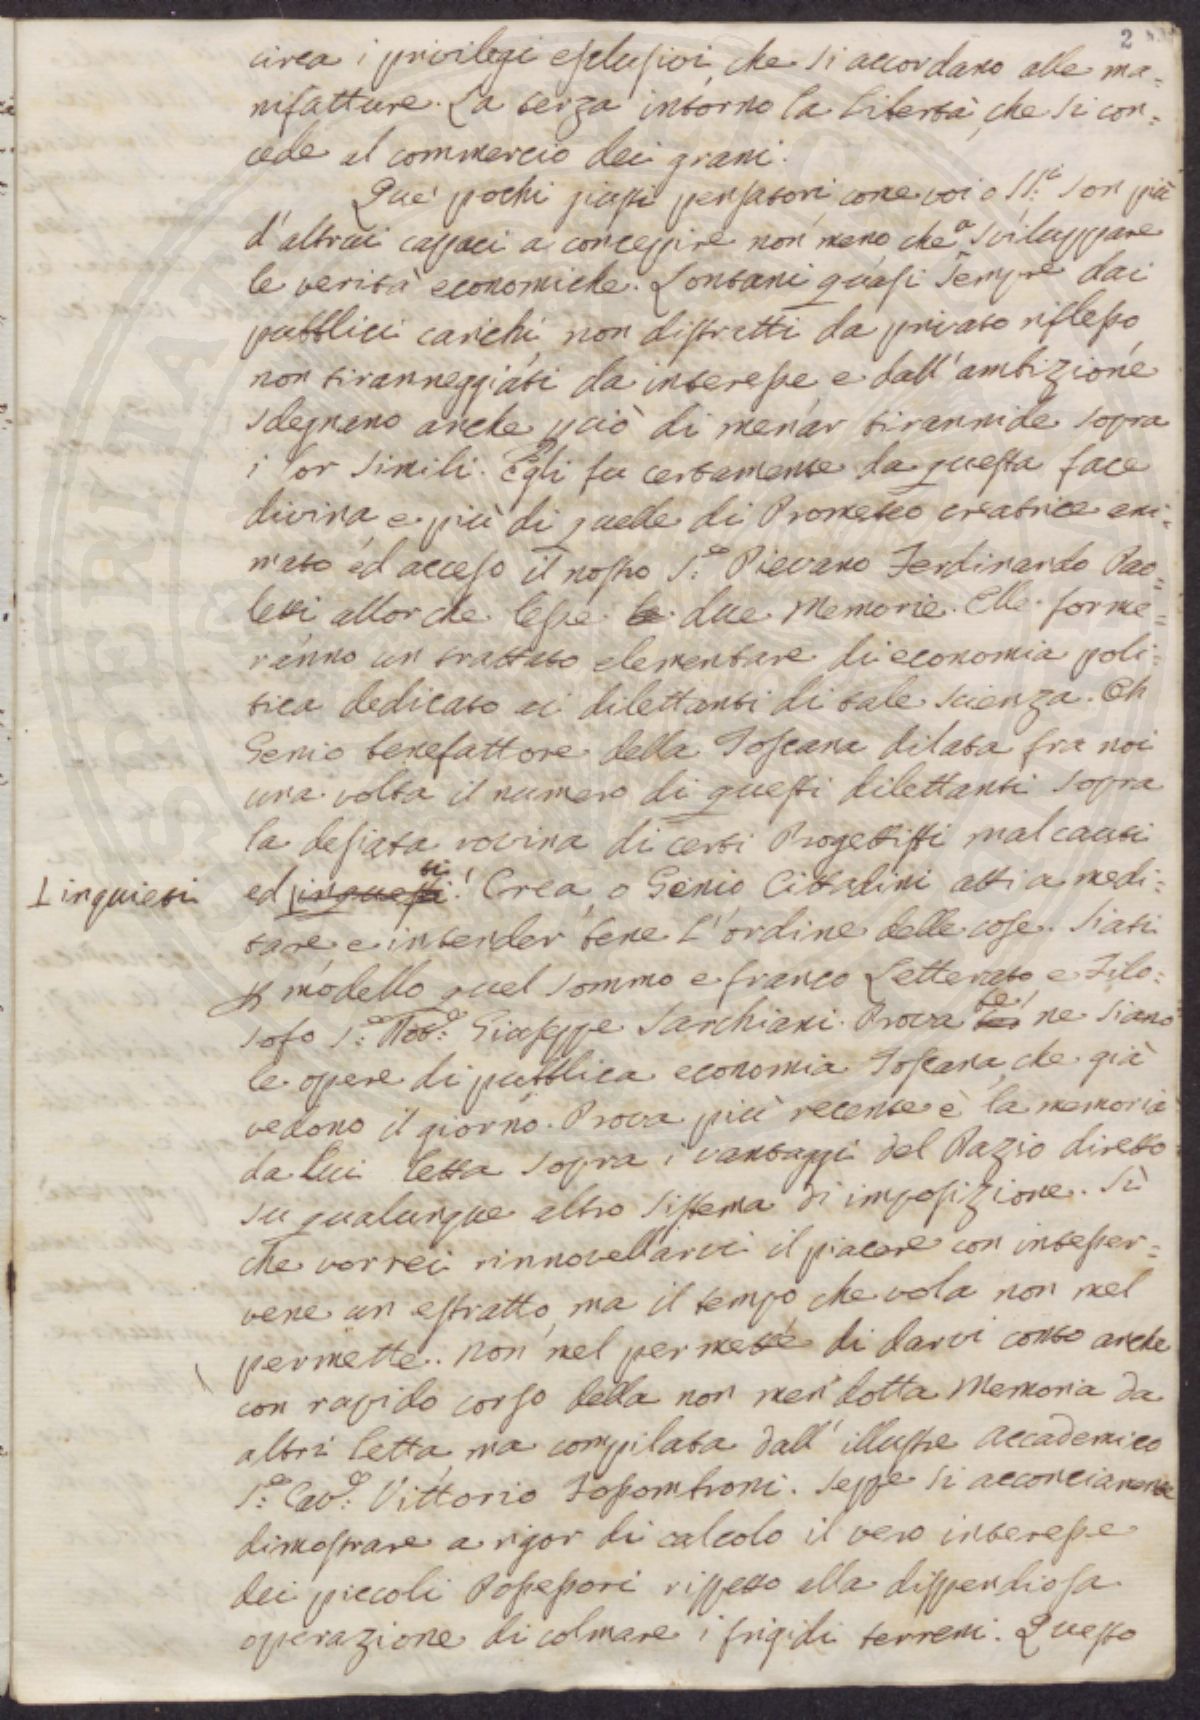 2
circa i privilegi esclusivi, che si accordano alle ma=
nifatture. La terza intorno la libertà, che si con=
cede al commercio dei grani.
Que' pochi giusti pensatori come voi o SS.i son più
d'altrui capaci a concepire non meno che a sviluppare
le verità economiche. Lontani quasi sempre dai
pubblici carichi, non distratti da privato riflesso,
non tiranneggiati da interesse, e dall'ambizione
sdegnano anche pciò di menar tirannide sopra
i lor simili. Egli fu certamente da questa face
divina, e più di quelle di Prometeo creatrice ani=
mato ed acceso il nostro S.e Pievano Ferdinando Pao=
letti allorche lesse le due Memorie. Elle forme=
ranno un trattato elementare di economia poli=
tica dedicato ai dilettanti di tale scienza. Oh
Genio benefattore della Toscana dilata fra noi
una volta il numero di questi dilettanti sopra
la desiata rovina di certi Progettisti mal cauti
inquieti ed inquesti! Crea, o Genio Cittadini atti a medi=
tare, e intender bene l'ordine delle cose. Siati
p modello quel sommo e franco Letterato e Filo=
sofo S.e Avv.o Giuseppe Sarchiani. Prova te ne siano
le opere di pubblica economia Toscana, che già
vedono il giorno. Prova più recente è la memoria
da lui letta sopra i vantaggi del Dazio diretto
su qualunque altro sistema di imposizione. Sì
che vorrei rinnovellarvi il piacere con intesser=
vene un estratto, ma il tempo che vola non mel
permette. Non mel permette di darvi conto anche
con rapido corso della non men dotta Memoria da
altri letta, ma compilata dall'illustre accademico
S.e Cav.e Vittorio Fossombroni. Seppe si acconciamente
dimostrare a rigor di calcolo il vero interesse
dei piccoli Possessori rispetto alla dispendiosa
operazione di colmare i frigidi terreni. Questo